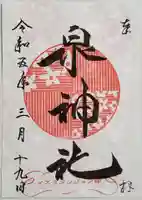 奉拝
泉神社
令和五年三月十九日